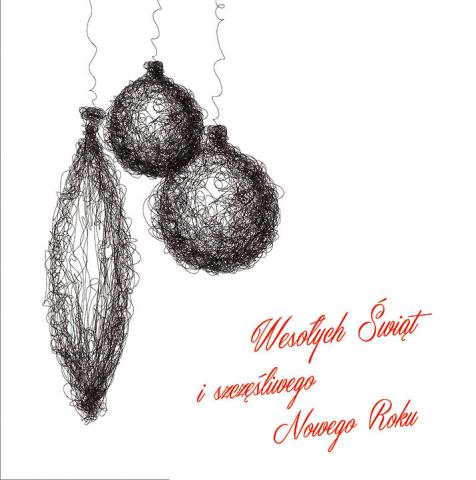 Wesołych Świąt
i szczęśliwego
Nowego Roku